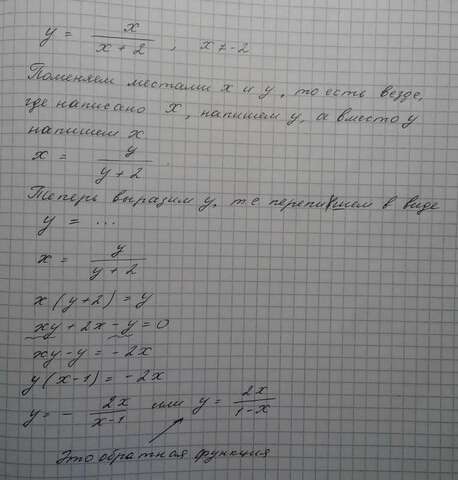 y = x / (x + 2) , x ≠ -2
Поменяем местами x и y, то есть везде,
где написано x, напишем y, а вместо y
напишем x
x = y / (y + 2)
Теперь выразим y, т е перепишем в виде
y = ...
x = y / (y + 2)
x (y+2) = y
xy + 2x - y = 0
xy - y = - 2x
y (x-1) = - 2x
y = - 2x / (x-1) или y = 2x / (1-x)
Это обратная функция